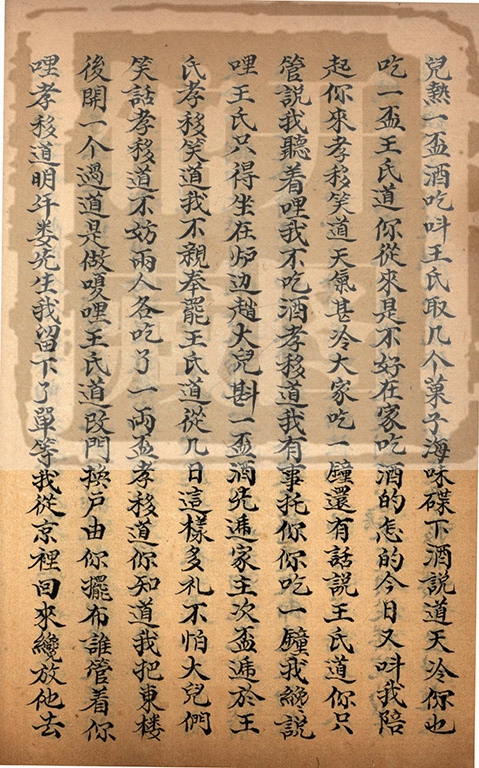 兒熱一盃酒吃呌王氏取几个菓子海味碟下酒說道天冷你也
吃一盃王氏道你從來是不好在家吃酒的怎的今日又呌我陪
起你來孝移笑道天氣甚冷大家吃一鐘還有話說王氏道你只
管說我聽着哩我不吃酒孝移道我有事托你你吃一鐘我纔說
哩王氏只得坐在炉边趙大兒斟一盃酒先遞家主次盃遞於王
氏孝移笑道我不親奉罷王氏道從几日這樣多礼不怕大兒們
笑話孝移道不妨兩人各吃了一兩盃孝移道你知道我把東楼
後開一个過道是做嗄哩王氏道改門換户由你擺布誰管着你
哩孝移道明年娄先生我留下了單等我從京裡回來纔放他去